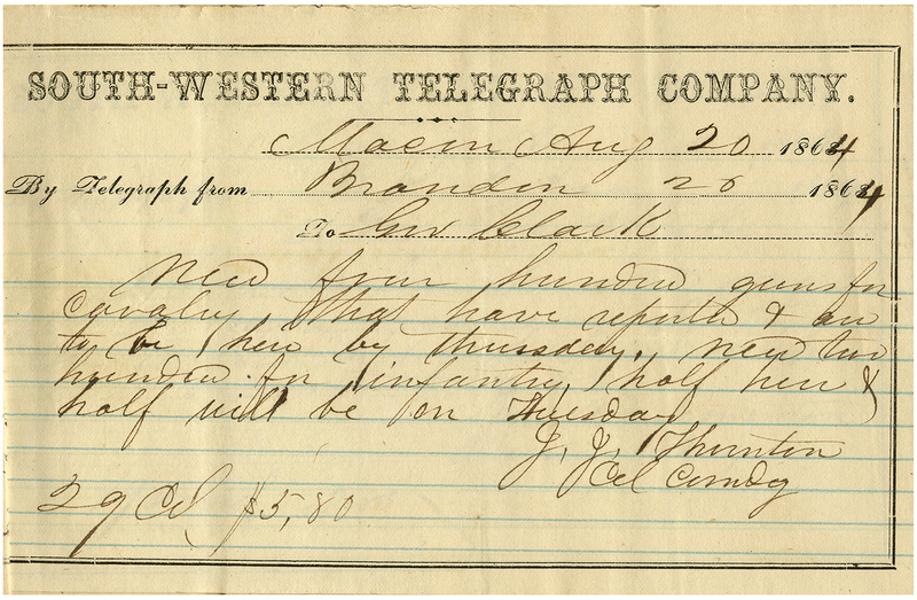 SOUTH-WESTERN TELEGRAPH COMPANY.
Macon Aug 20 1864
By Telegraph from Brandon 20 1864
To Gov Clark
Need four hundred guns for
cavalry that have reported & are
to be here by thursday. need two
hundred for infantry, half here &
half will be on Thursday
J. J. Thornton
Col Comdg
29 Col $5,80